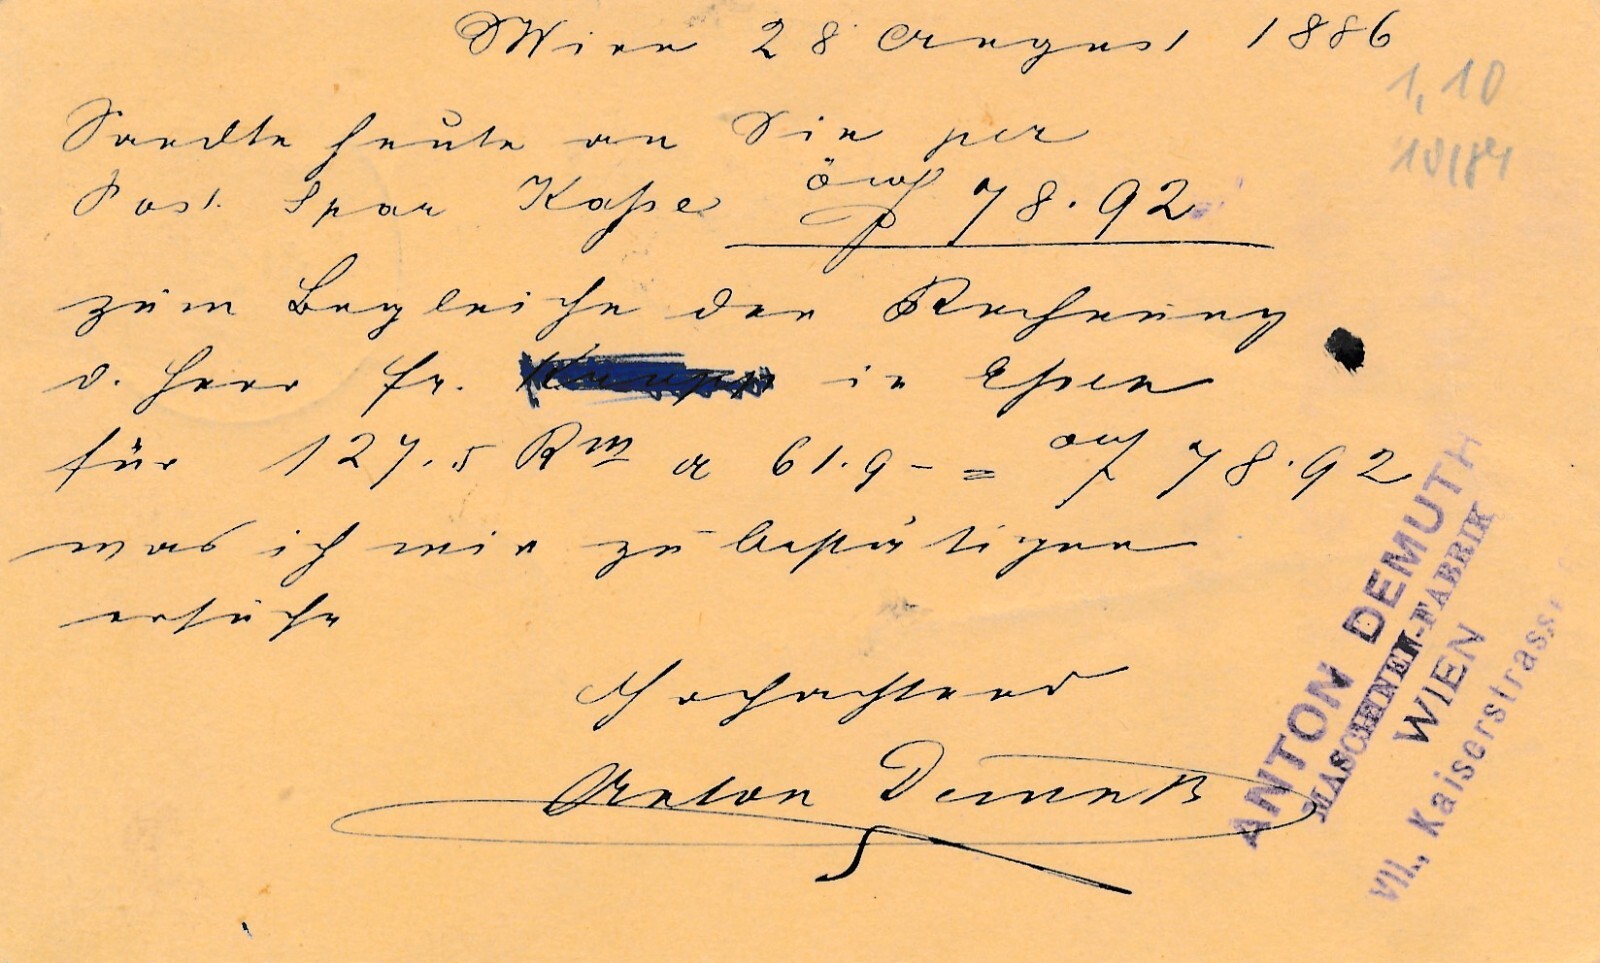 Wien 28 August 1886
1,10
10/84
Sandte heute an Sie per
Post Spar Kaße öwf 78.92
zum Begleiche der Rechnung
v. Herr Fr. Krupp in Eßen
für 127.5 Rm a 61.9 - = owf 78.92
was ich mir zu bestätigen
ersuche
Hochachtend
Anton Demuth
ANTON DEMUTH
MASCHINEN-FABRIK
WIEN
VII., Kaiserstrasse